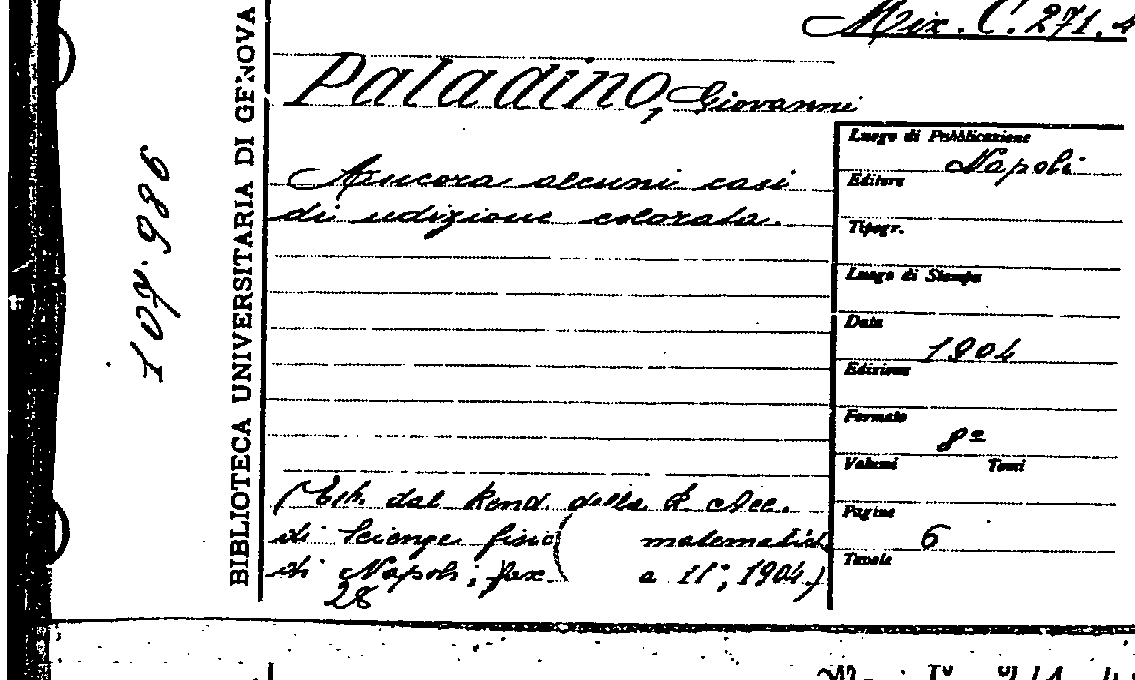 Mix. C. 271.4
BIBLIOTECA UNIVERSITARIA DI GENOVA
107.986
Paladino, Giovanni
Ancora alcuni casi
di udizione colorata.
(Estr. dal Rend. della R. Acc.
di Scienze fisic matematich
di Napoli; fasc. a 11°, 1904)
28
Luogo di Pubblicazione
Napoli
Editore
Tipogr.
Luogo di Stampa
Data
1904
Edizione
Formato
8º
Volumi Tomi
Pagine
6
Tavole